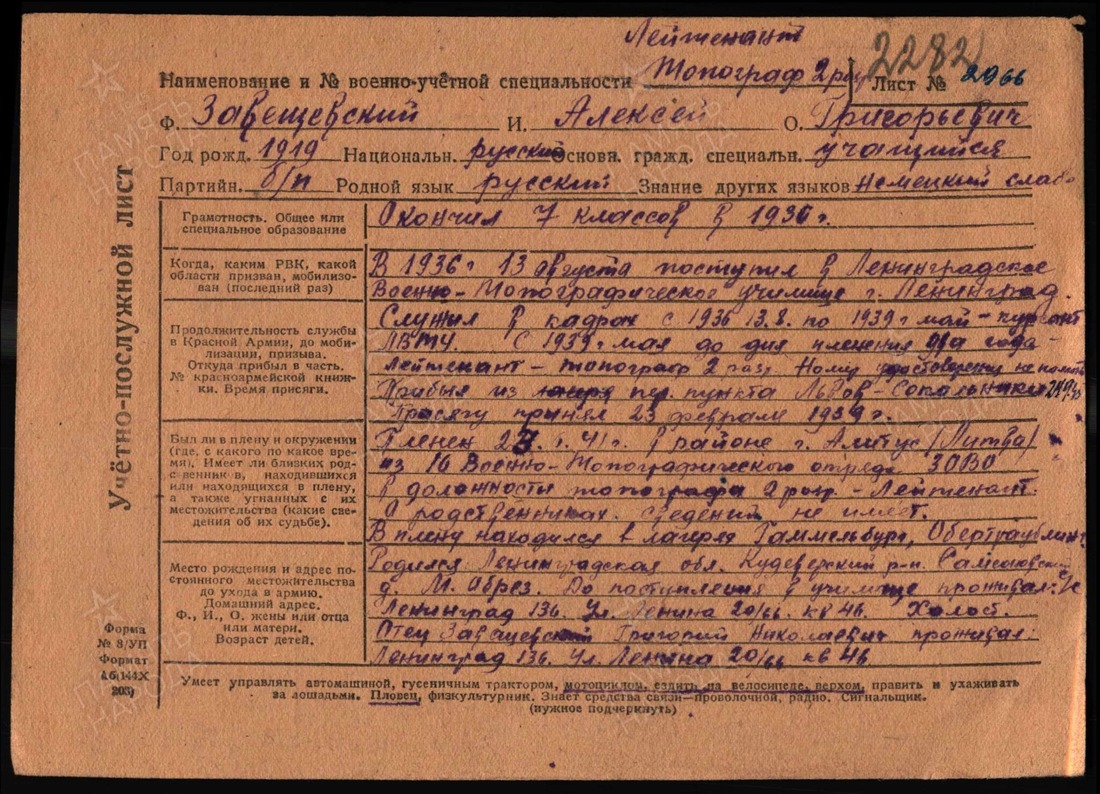 Лейтенант
2282
Наименование и № военно-учётной специальности Топограф 2 раз Лист № 2966
Ф. Завещевский И. Алексей О. Григорьевич
Год рожд. 1919 Национальн. русский Основн. гражд. специальн. учащийся
Партийн. б/п Родной язык русский Знание других языков Немецкий слабо
Учётно-послужной лист
Грамотность. Общее или
специальное образование
Окончил 7 классов в 1936 г.
Когда, каким РВК, какой
области призван, мобилизо-
ван (последний раз)
В 1936 г 13 августа поступил в Ленинградское
Военно-Топографическое училище г. Ленинград.
Продолжительность службы
в Красной Армии, до моби-
лизации, призыва.
Откуда прибыл в часть.
№ красноармейской книж-
ки. Время присяги.
Служил в кадрах с 1936 13.8. по 1939 г май - курсант
ЛВТУ. С 1939 г мая до дня пленения года -
Лейтенант - топограф 2 раз. Номер удостоверен не помнит
Прибыл из пер. пункта Львов - Сокольники
Присягу принял 23 февраля 1939 г.
Был ли в плену и окружении
(где, с какого по какое вре-
мя). Имеет ли близких род-
ственников, находившихся
или находящихся в плену,
а также угнанных с их
местожительства (какие све-
дения об их судьбе).
Пленен 41 г. в районе г. Алитус (Литва)
из 16 Военно-Топографического отряда ЗОВО
в должности топографа 2 разр. - Лейтенант.
О родственниках сведений не имеет.
В плену находился в лагерях Гаммельбург, Обертраублинг
Место рождения и адрес по-
стоянного местожительства
до ухода в армию.
Домашний адрес.
Ф., И., О. жены или отца
или матери.
Возраст детей.
Родился Ленинградская обл. Кудеверский р-н. Самсоновский
д. М. Обрез. До поступления в училище проживал:
Ленинград 136. Ул. Ленина 20/66. кв 46. Холост.
Отец Завещевский Григорий Николаевич проживал:
Ленинград 136. Ул. Ленина 20/66 кв 46
Форма
№ 8/УП
Формат
А6(144Х
203)
Умеет управлять автомашиной, гусеничным трактором, мотоциклом, ездить на велосипеде, верхом, править и ухаживать
за лошадьми. Пловец, физкультурник. Знает средства связи—проволочной, радио. Сигнальщик.
(нужное подчеркнуть)